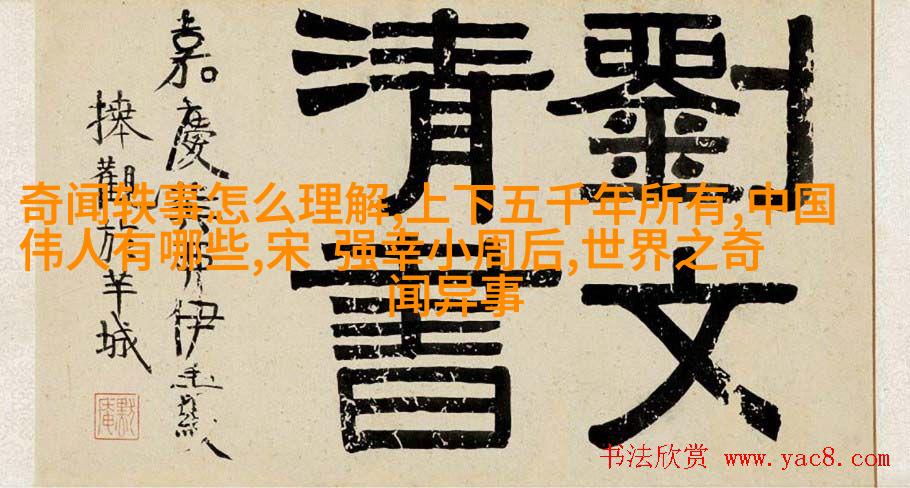 劉文
清書
嘉慶 伊秉綬
捧觀於羊城
奇闻轶事怎么理解,上下五千年所有,中国
伟人有哪些,宋 强幸小周后,世界之奇
闻异事
书法欣赏 www.yac8.com